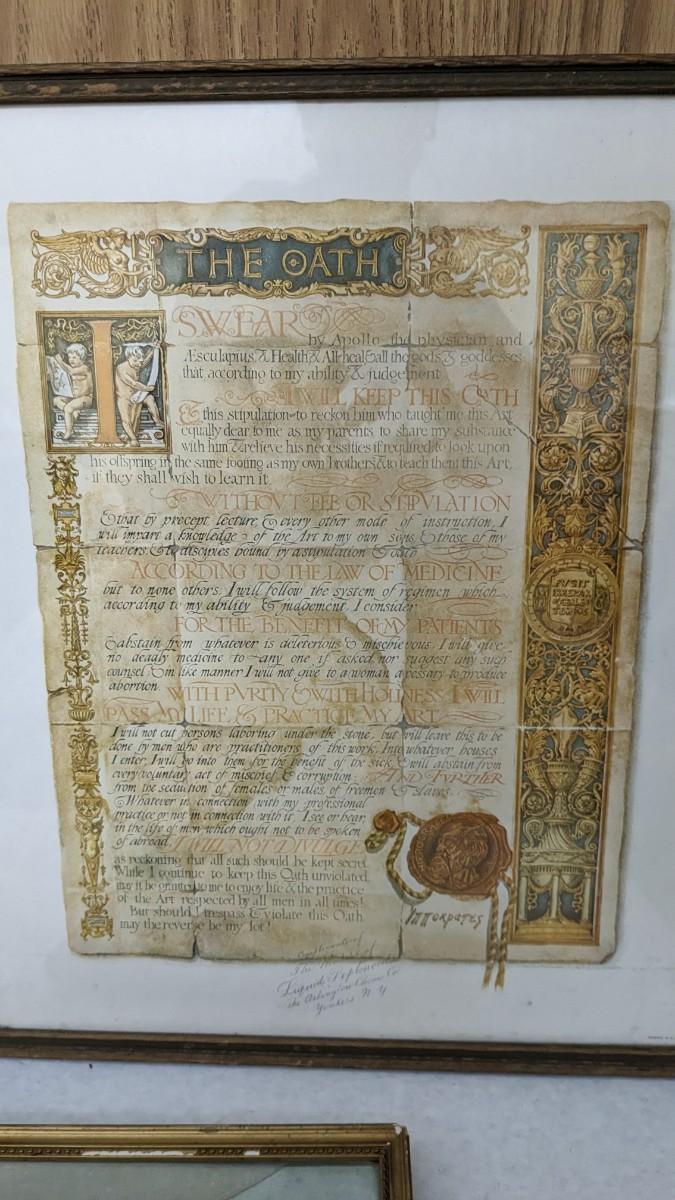 THE OATH
I SWEAR
by Apollo the physician and
Æsculapius, & Health & All-heal & all the gods & goddesses
that according to my ability & judgement
I WILL KEEP THIS OATH
& this stipulation-to reckon him who taught me this Art
equally dear to me as my parents to share my substance
with him & relieve his necessities if required to look upon
his offspring in the same footing as my own brothers & to teach them this Art,
if they shall wish to learn it
WITHOVT FEE OR STIPVLATION
& that by precept, lecture, & every other mode of instruction, I
will impart a knowledge of the Art to my own sons, & those of my
teachers, & to disciples bound by a stipulation & oath
ACCORDING TO THE LAW OF MEDICINE
but to none others. I will follow the system of regimen which,
according to my ability & judgement, I consider
FOR THE BENEFIT OF MY PATIENTS
& abstain from whatever is deleterious & mischievous. I will give
no deadly medicine to any one if asked, nor suggest any such
counsel & in like manner I will not give to a woman a pessary to produce
abortion. WITH PVRITY & WITH HOLINESS I WILL
PASS MY LIFE & PRACTICE MY ART
I will not cut persons laboring under the stone, but will leave this to be
done by men who are practitioners of this work. Into whatever houses
I enter, I will go into them for the benefit of the sick, & will abstain from
every voluntary act of mischief & corruption; AND FVRTHER
from the seduction of females or males, of freemen & slaves.
Whatever in connection with my professional
practice or not in connection with it, I see or hear,
in the life of men which ought not to be spoken
of abroad I WILL NOT DIVULGE
as reckoning that all such should be kept secret.
While I continue to keep this Oath unviolated,
may it be granted to me to enjoy life & the practice
of the Art respected by all men in all times!
But should I trespass & violate this Oath
may the reverse be my lot!
FVGIT
TEMPVS
Yonkers N Y